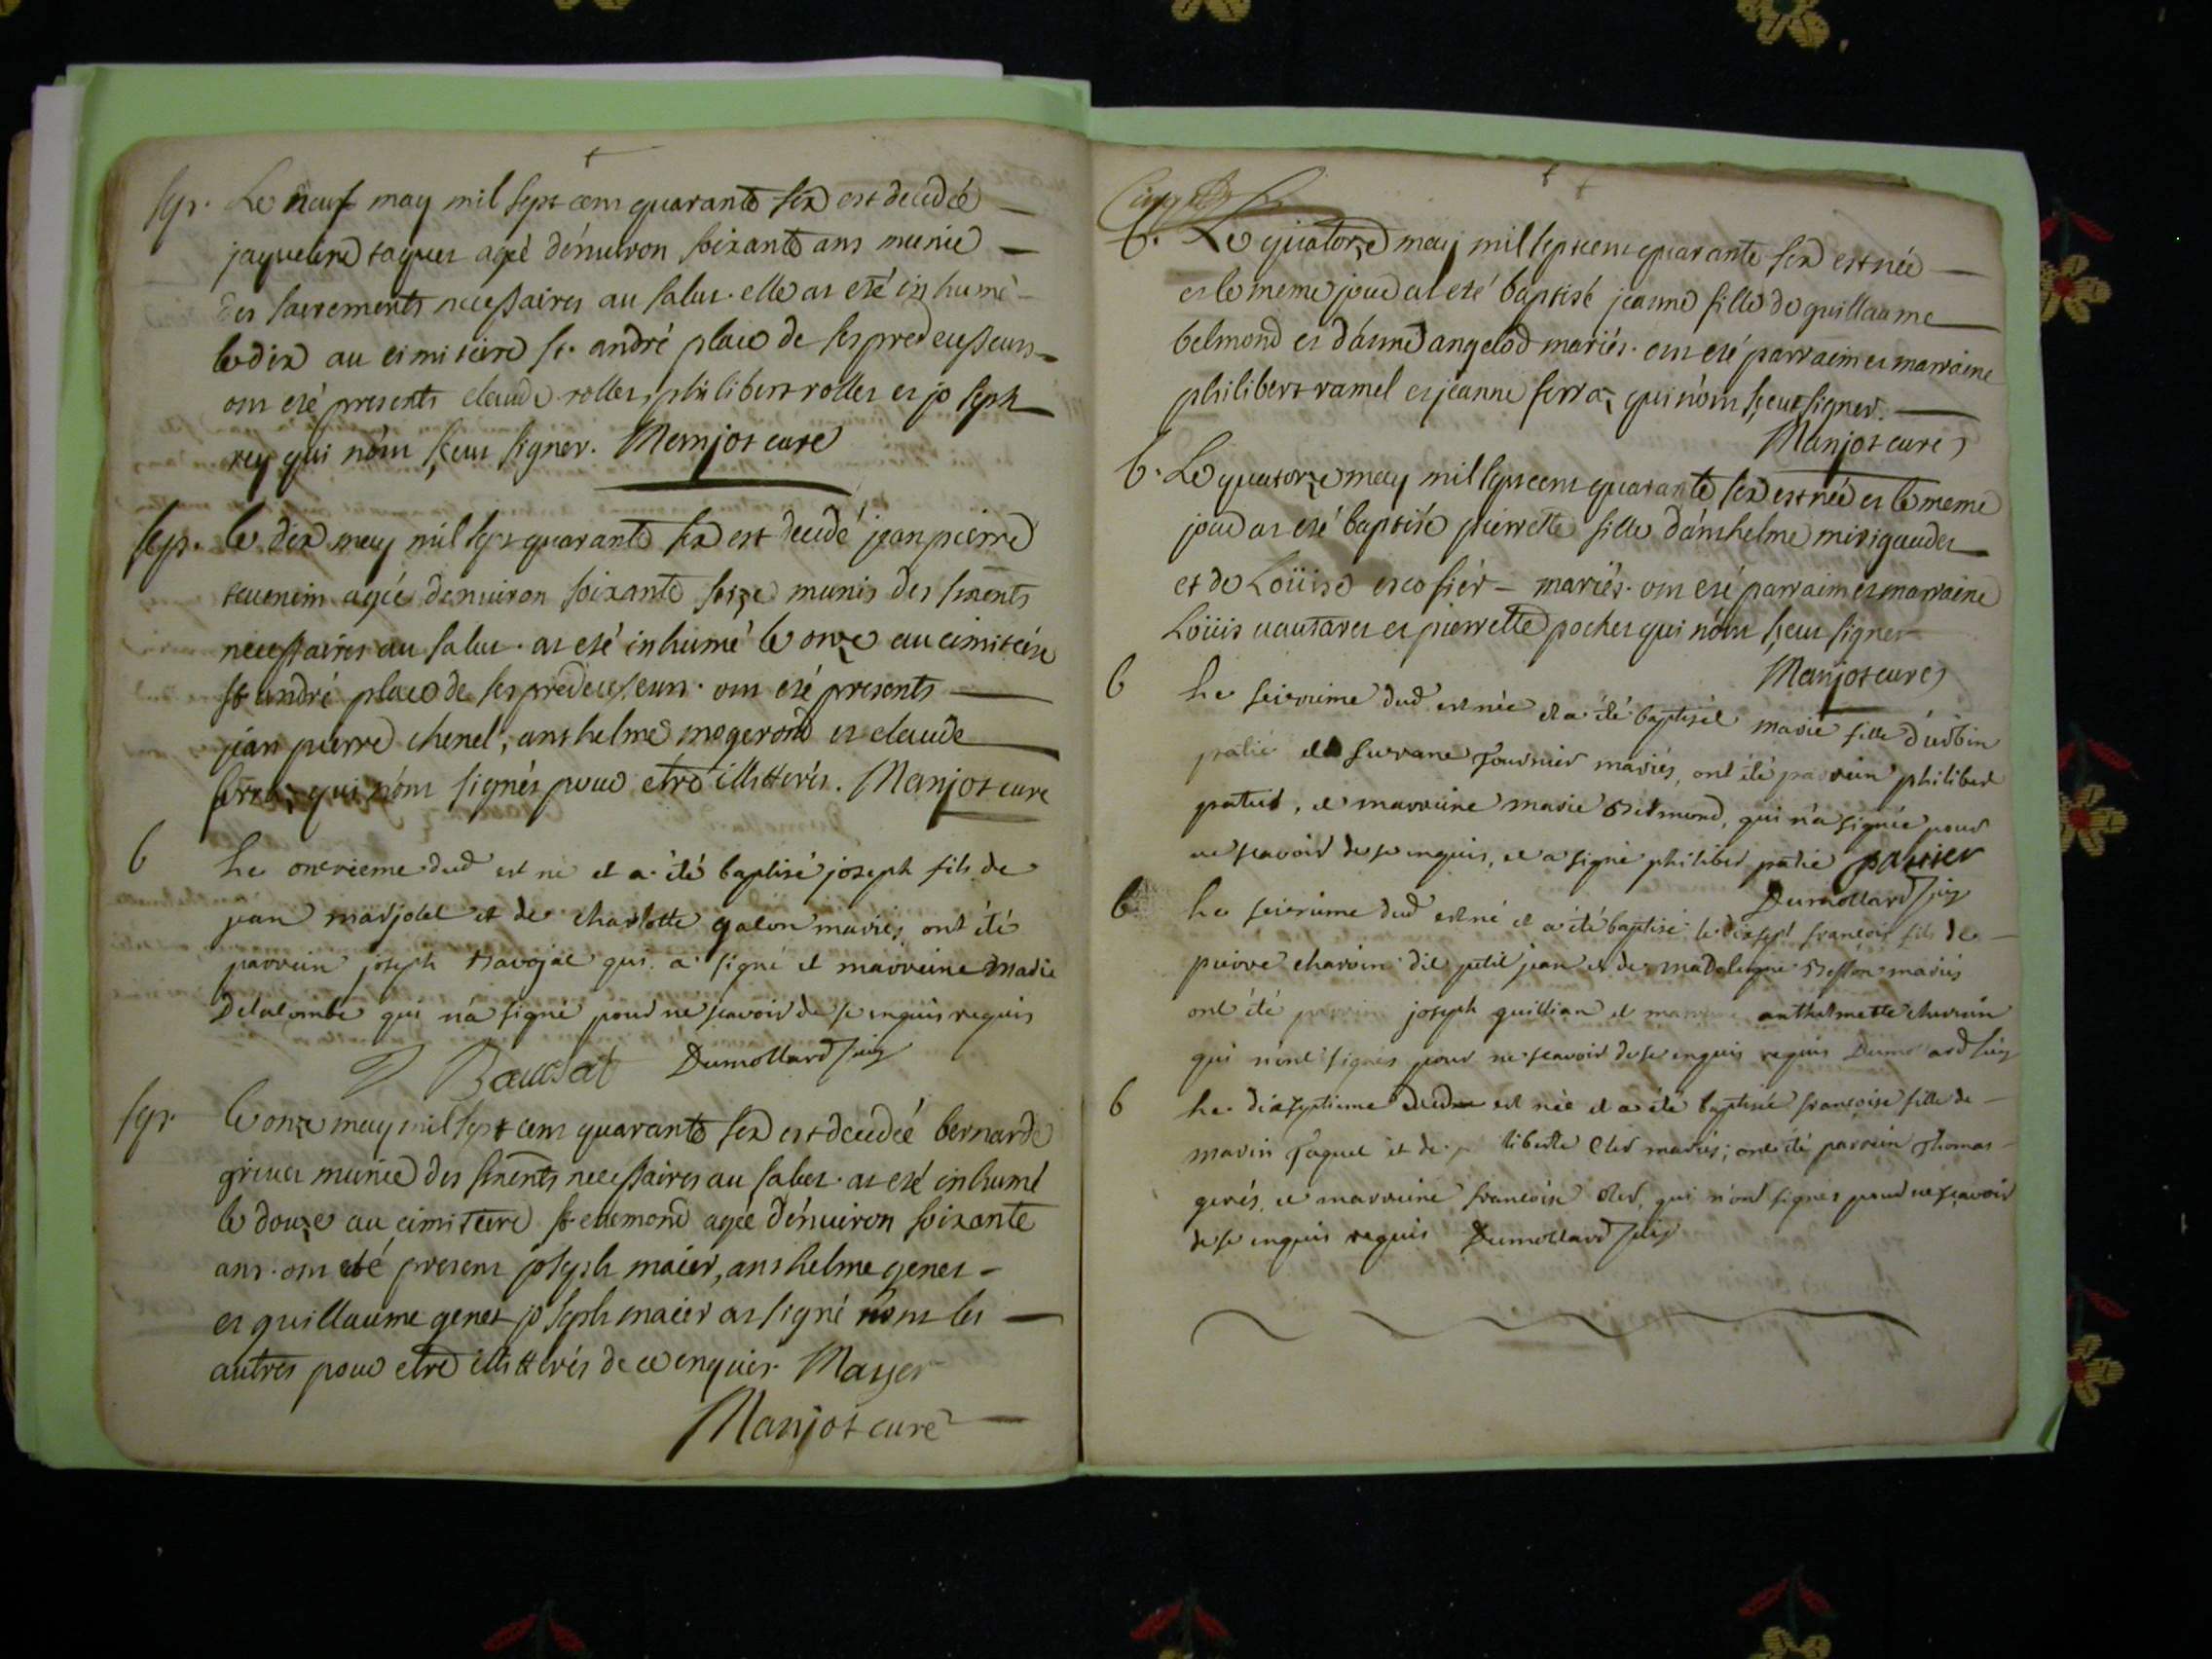 sep. Le neuf may mil sept cem quarante six est decedéé
jaqueline taquet agé d'enuiron soixante ans munie
des sacrements necessaires au salut. elle at eté inhumé
le dix au cimitiere st. andré place de ses predecesseurs
ont eté presents claude rollet, philibert rollet et joseph
rey qui n'ont sceut signer. Manjot curé
sep. le dix may mil sept quarante six est decedé jean pierre
teuenin agéé denuiron soixante seize munis des sments
necessaires au salut. at eté inhumé le onze au cimitiere
st andré place de ses predecesseurs. ont eté presents
jean pierre chenel, anthelme mogerond et claude
qui n'ont signés pour etre illitterés. Manjot curé
b Le onzieme dud est né et a été baptisé joseph fils de
jean marjolet et de charlotte galon mariés, ont été
parrein joseph qui a signé et marreine marie
Delalombe qui n'a signé pour ne scavoir de ce enquis requis
Dumollard vic
sep. le onze may mil sept cem quarante six est decedéé bernarde
griuet munie des sments necessaires au salut. at eté inhumé
le douze au cimitiere st. enemond agée d'enuiron soixante
ans. ont eté present joseph maier, anthelme genet
et guillaume genet joseph maier at signé nom les
autres pour etre illitterés de ce enquis. Mayer
Manjot curé
b. Le quatorze may mil septcem quarante six est née
et le meme jour at eté baptisé jeanne fille de guillaume
belmond et d'anne angelod mariés. ont eté parraim et marraine
philibert ramel et jeanne serraz qui n'ont sceut signer.
Manjot curé
b. Le quatorze may mil septcem quarante six est née et le meme
jour at eté baptisé pierrette fille d'anthelme mirigaudet
et de Loüise escofiér mariés. ont eté parraim et marraine
Loüis uautaret et pierrette pochet qui n'ont sceut signer
Manjot curé
b Le seizieme dud est née et a été baptiséé marie fille d'urbin
patié et suzane fournier mariés, ont été parrein philibert
patié, et marreine marie Belmond, qui n'a signée pour
ne scavoir de ce enquis, et a signé philibert patié patiier
Dumollard vic
b Le seizieme dud est né et a été baptisé le dixsept françois fils de
pierre charvin dit petit jean et de madeleine Besson mariés
ont été parrein joseph quillian et marreine anthelmette charvin
qui n'ont signés pour ne scavoir de ce enquis requis Dumollard vic
b Le dixseptieme dud est née et a été baptisée françoise fille de
marin Taquet et de philiberte Clet mariés; ont été parrein Thomas
genés, et marreine françoise Clet, qui n'ont signés pour ne scavoir
de ce enquis requis Dumollard vic